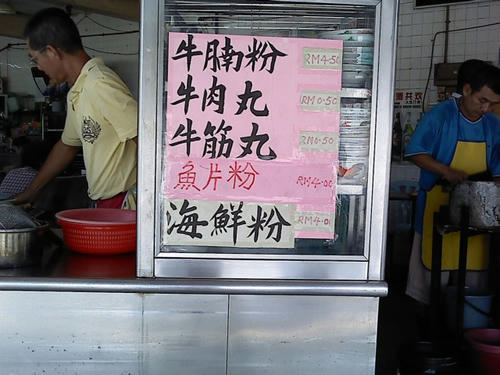 牛腩粉 RM4.50
牛肉丸 RM0.50
牛筋丸 RM0.50
魚片粉 RM4.00
海鮮粉 RM4.00